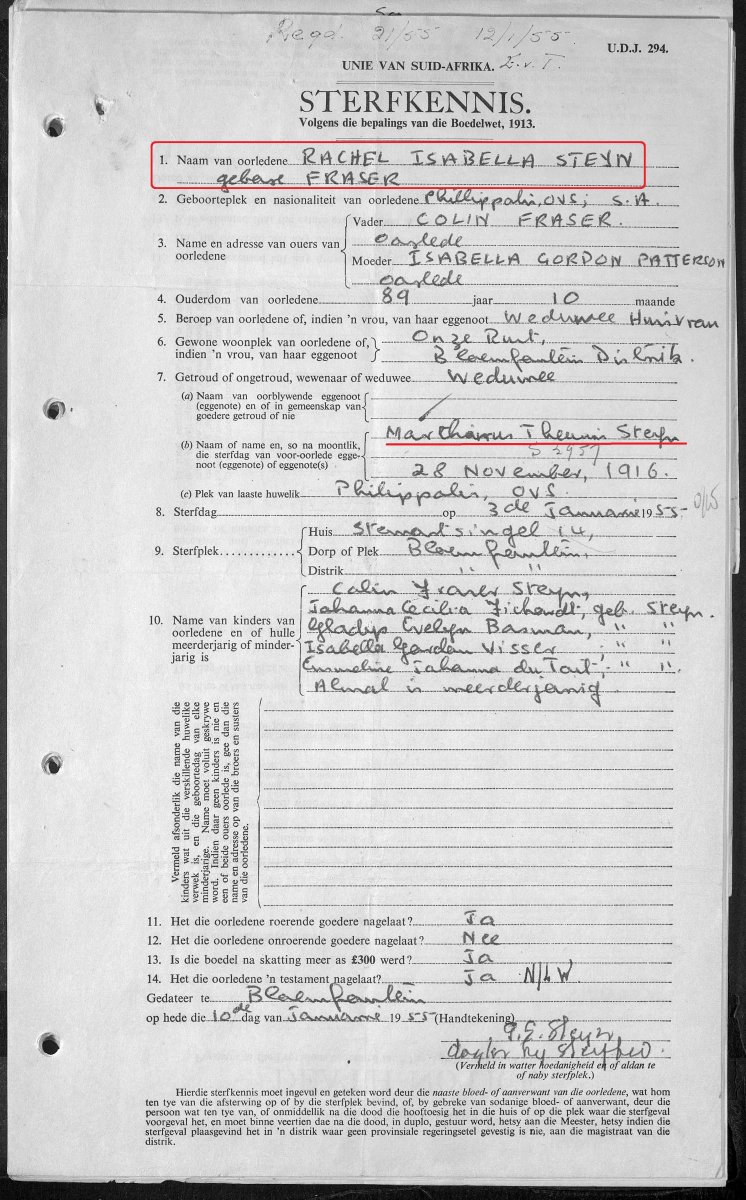 Regd. 21/55 12/1/55.
U.D.J. 294.
UNIE VAN SUID-AFRIKA. E.v.T.
STERFKENNIS.
Volgens die bepalings van die Boedelwet, 1913.
1. Naam van oorledene RACHEL ISABELLA STEYN
gebore FRASER
2. Geboorteplek en nasionaliteit van oorledene Phillippolis, OVS; S.A.
3. Name en adresse van ouers van oorledene
Vader COLIN FRASER.
oorlede
Moeder ISABELLA GORDON PATTERSON
oorlede
4. Ouderdom van oorledene 89 jaar 10 maande
5. Beroep van oorledene of, indien 'n vrou, van haar eggenoot Weduwee Huisvrou
6. Gewone woonplek van oorledene of, indien 'n vrou, van haar eggenoot
Onze Rust,
Bloemfontein Distrik.
7. Getroud of ongetroud, wewenaar of weduwee Weduwee
(a) Naam van oorblywende eggenoot
(eggenote) en of in gemeenskap van
goedere getroud of nie
(b) Naam of name en, so na moontlik,
die sterfdag van voor-oorlede egge-
noot (eggenote) of eggenote(s)
Marthinus Theunis Steyn
S 2957
28 November, 1916.
(c) Plek van laaste huwelik Philippolis, OVS.
8. Sterfdag op 3de Januarie 1955
9. Sterfplek
Huis Stewartsingel 14,
Dorp of Plek Bloemfontein.
Distrik " "
10. Name van kinders van
oorledene en of hulle
meerderjarig of minder-
jarig is
Colin Fraser Steyn,
Johanna Cecilia Fichardt, geb. Steyn.
Gladys Evelyn Basman, " "
Isabella Gordon Visser ; " "
Emmeline Johanna du Toit, " ".
Almal is meerderjarig
Vermeld afsonderlik die name van die
kinders wat uit die verskillende huwelike
verwek is, en die geboortedag van elke
minderjarige. Name moet voluit geskrywe
word. Indien daar geen kinders is nie en
een of beide ouers oorlede is, gee dan die
name en adresse op van die broers en susters
van die oorledene.
11. Het die oorledene roerende goedere nagelaat? Ja
12. Het die oorledene onroerende goedere nagelaat? Nee
13. Is die boedel na skatting meer as £300 werd? Ja
14. Het die oorledene 'n testament nagelaat? Ja N/L W
Gedateer te Bloemfontein
op hede die 10de dag van Januarie 1955 (Handtekening)
G.E. Steyn,
dogter by sterfbed.
(Vermeld in watter hoedanigheid en of aldan te
of naby sterfplek.)
Hierdie sterfkennis moet ingevul en geteken word deur die naaste bloed- of aanverwant van die oorledene, wat hom
ten tye van die afsterwing op of by die sterfplek bevind, of, by gebreke van sodanige bloed- of aanverwant, deur die
persoon wat ten tye van, of onmiddellik na die dood die hooftoesig het in die huis of op die plek waar die sterfgeval
voorgeval het, en moet binne veertien dae na die dood, in duplo, gestuur word, hetsy aan die Meester, hetsy indien die
sterfgeval plaasgevind het in 'n distrik waar geen provinsiale regeringsetel gevestig is nie, aan die magistraat van die
distrik.